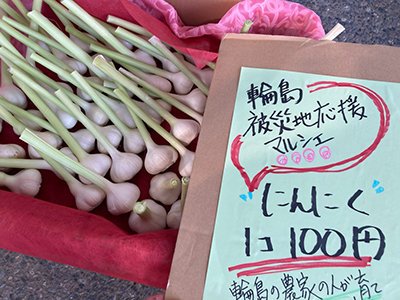 輪島
被災地応援
マルシェ
にんにく
1コ 100円
輪島の農家の人が育て